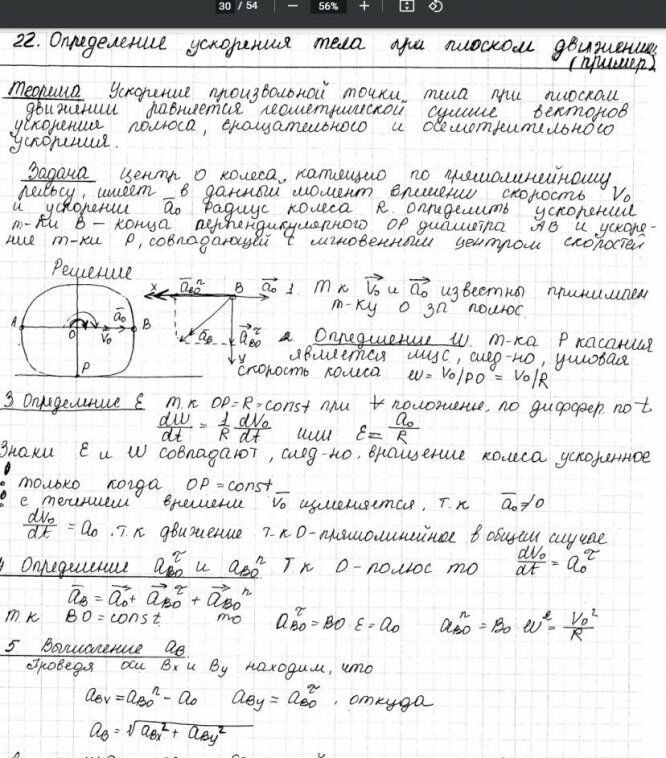 30 / 54 − 56% +
22. Определение ускорения тела при плоском движении
(пример)
Теорема Ускорение произвольной точки тела при плоском
движении равняется геометрической сумме векторов
ускорения полюса, вращательного и осетремительного
ускорения.
Задача Центр О колеса, катящию по прямолинейному
рельсу, имеет в данный момент времени скорость V₀
и ускорении a̅₀ радиус колеса R. определить ускорения
т-ки В – конца перпендикулярного ОР диаметра АВ и ускоре-
ние т-ки Р, совпадающей с мгновенным центром скоростей
Решение
A O V₀ a̅₀ B P
x a̅ᴮᴼⁿ B a̅₀ a̅ᴮ a̅ᴮᴼ^τ y
1. Т к V₀ и a₀ известны принимаем
т-ку О за полюс.
2 Определение W. т-ка Р касания
является мцс, след-но, угловая
скорость колеса w = V₀/PO = V₀/R
3 Определение Ɛ т.к OP=R=const при ∀ положени, по диффер. по t
dW/dt = 1/R dV₀/dt или Ɛ = a₀/R
Знаки Ɛ и W совпадают, след-но. вращение колеса ускоренное
только когда OP=const
с течением времени V̅₀ изменяется, т.к a̅₀≠0
dV₀/dt = a₀. т.к движение т-к О-прямолинейное в общем случае
4 Определение a_BO^τ и a_BO^n. Т.к О-полюс то dV₀/dt = a₀^τ
a̅_B = a̅₀ + a̅_BO^τ + a̅_BO^n
т к BO = const то a_BO^τ = BO·Ɛ = a₀ a_BO^n = BO w² = V₀²/R
5 Вычисление a_B.
Проведя оси Bx и By находим, что
a_Bx = a_BO^n - a₀ a_By = a_BO^τ, откуда
a_B = √(a_Bx² + a_By²)